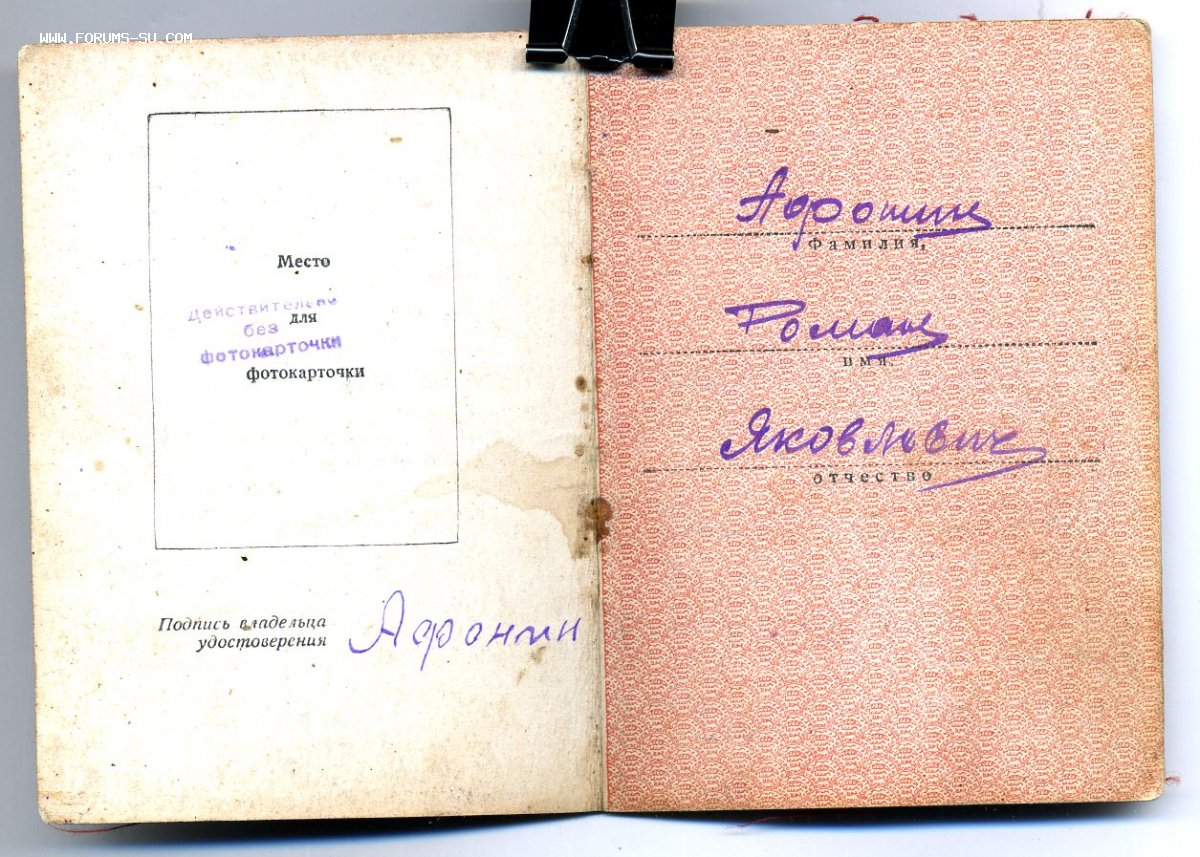 WWW.FORUMS-SU.COM
Место
для
фотокарточки
Действительно
без
фотокарточки
Подпись владельца
удостоверения
Афонин
Афонин
Фамилия,
Роман
имя,
Яковлевич
отчество